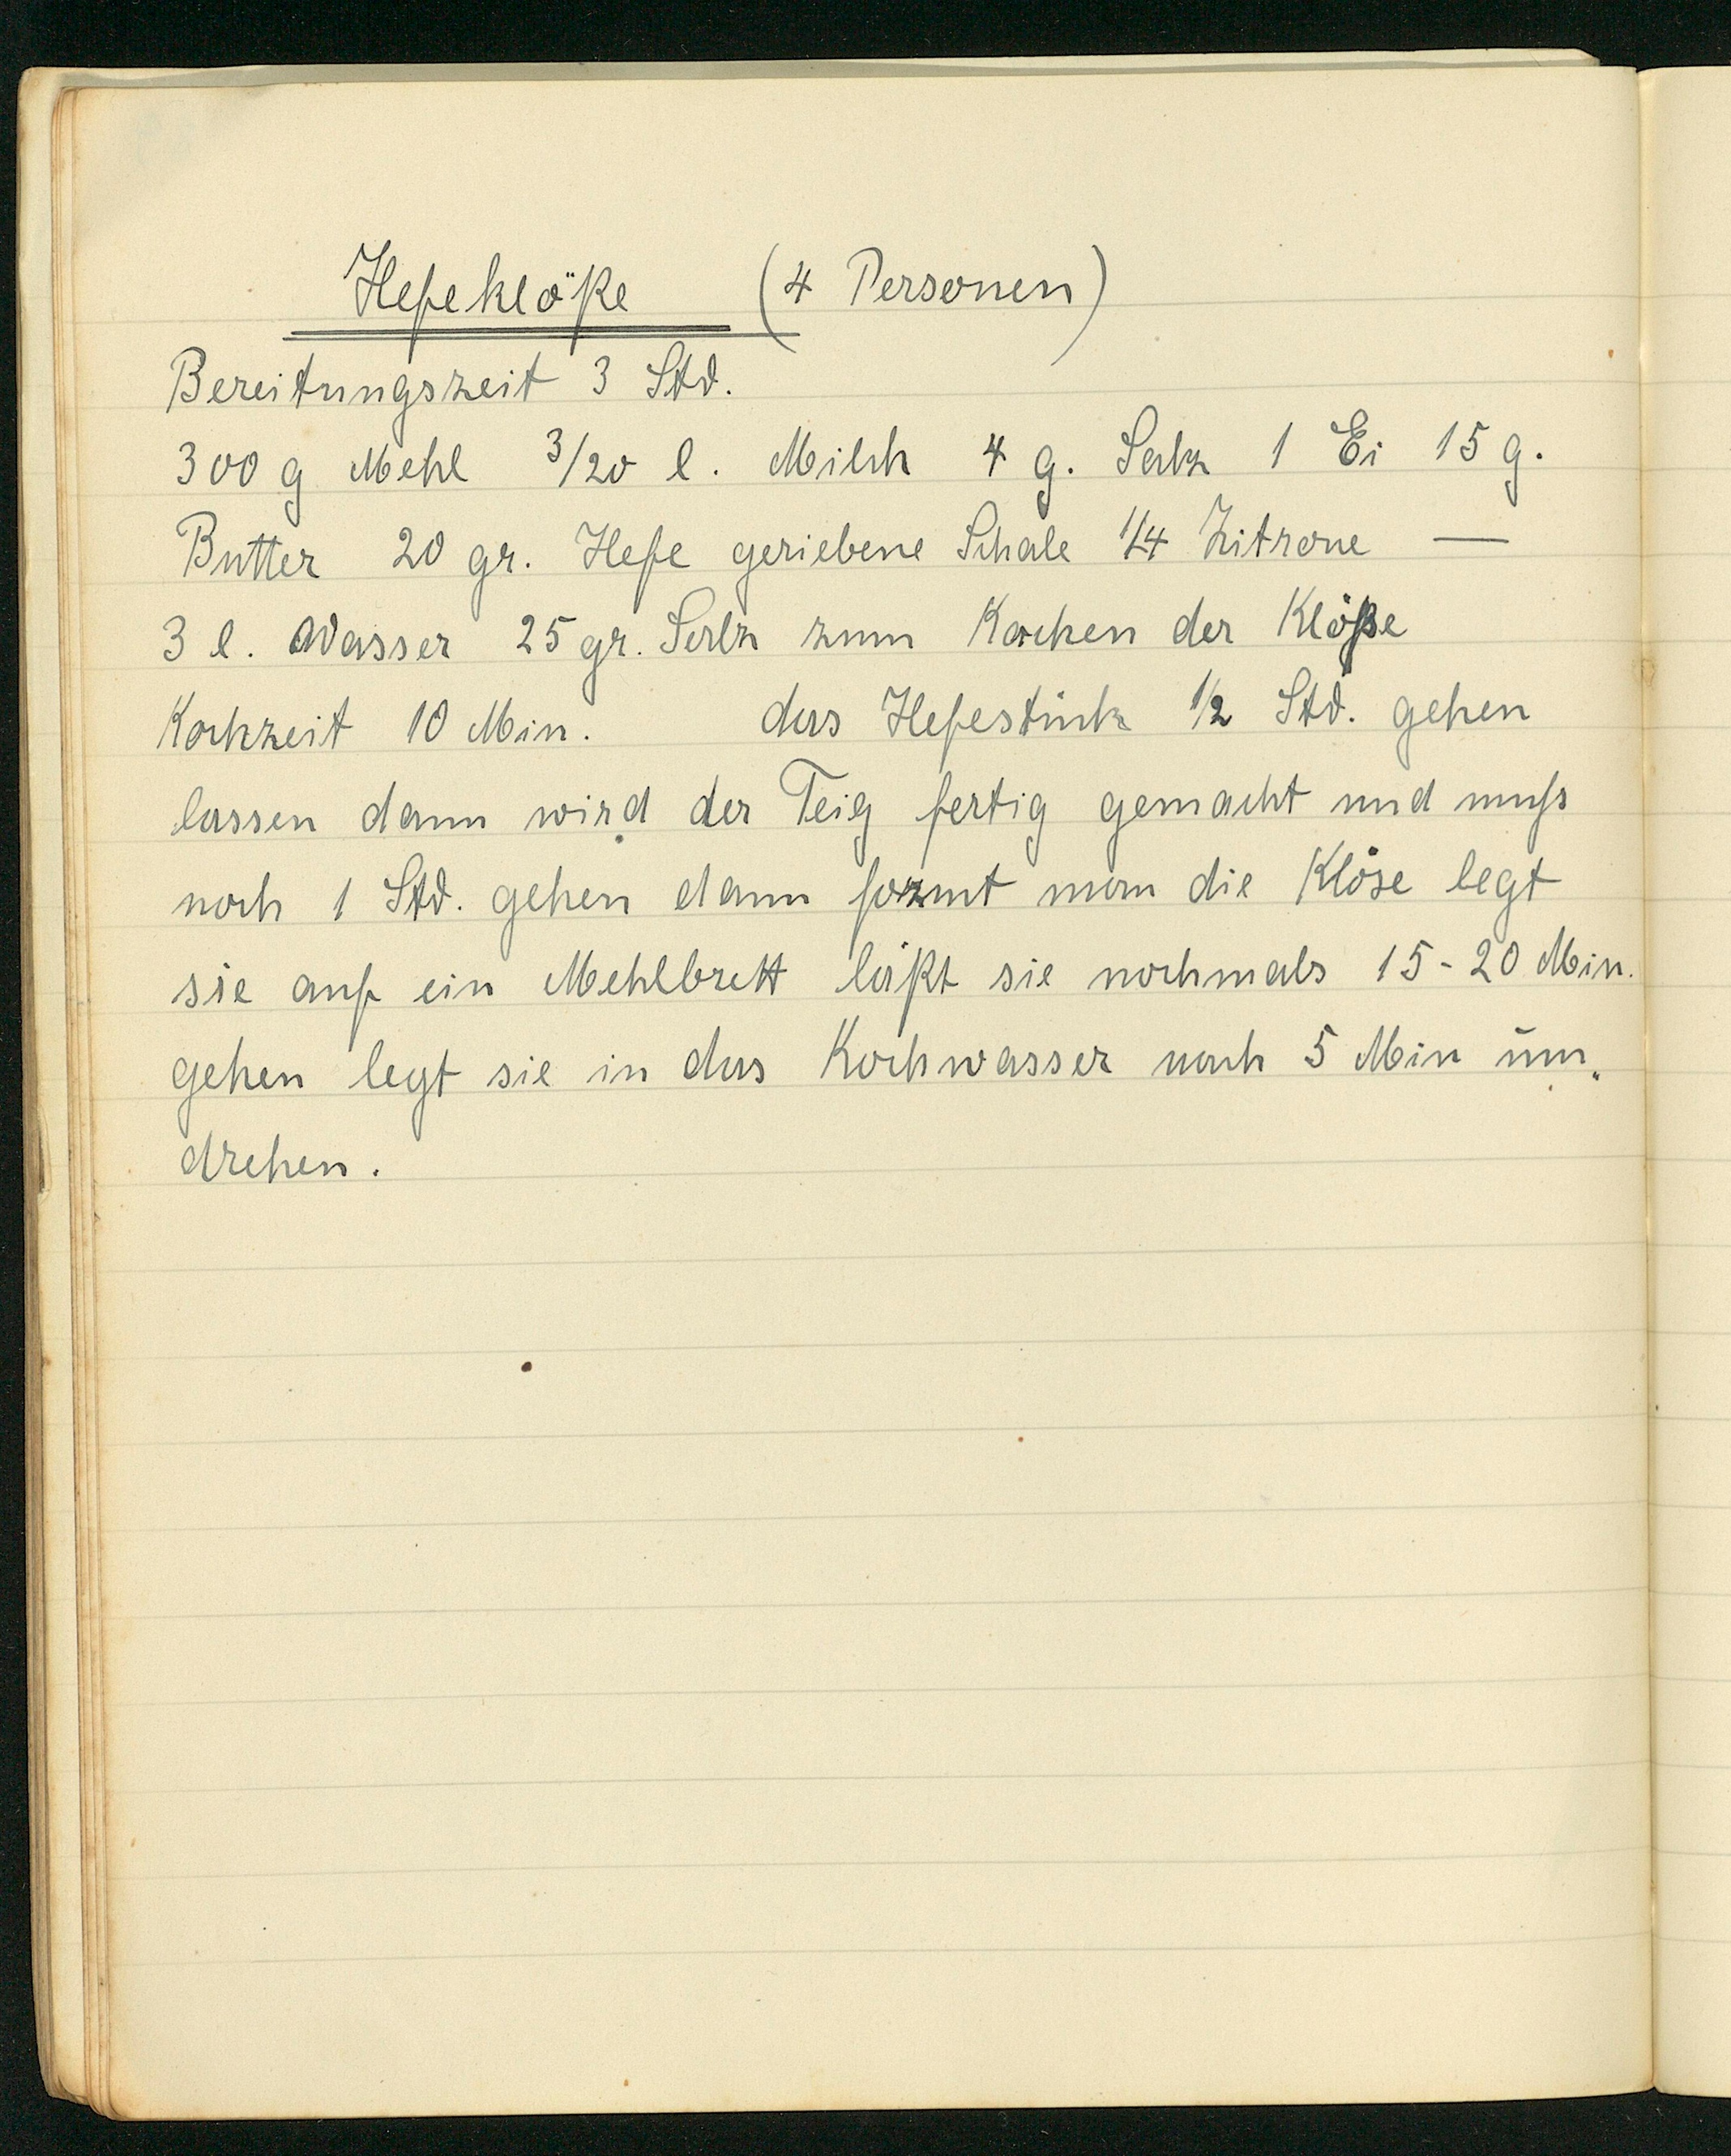 Hefeklöße (4 Personen)
Bereitungszeit 3 Std.
300 g Mehl 3/20 l. Milch 4 g. Salz 1 Ei 15 g.
Butter 20 gr. Hefe geriebene Schale 1/4 Zitrone —
3 l. Wasser 25 gr. Salz zum Kochen der Klöße
Kochzeit 10 Min. das Hefestück 1/2 Std. gehen
lassen dann wird der Teig fertig gemacht und muſs
noch 1 Std. gehen dann formt man die Klöse legt
sie auf ein Mehlbrett läßt sie nochmals 15-20 Min.
gehen legt sie in das Kochwasser nach 5 Min um„
drehen.